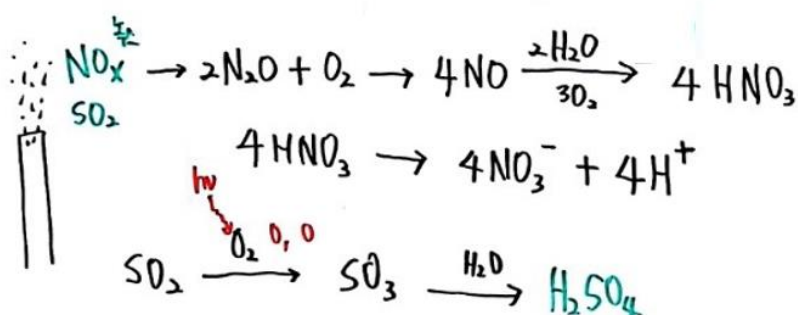 NOx → 2N₂O + O₂ → 4NO 2H₂O/3O₂ → 4HNO₃
SO₂
4HNO₃ → 4NO₃⁻ + 4H⁺
hν
O₂ O, O
SO₂ → SO₃ H₂O → H₂SO₄